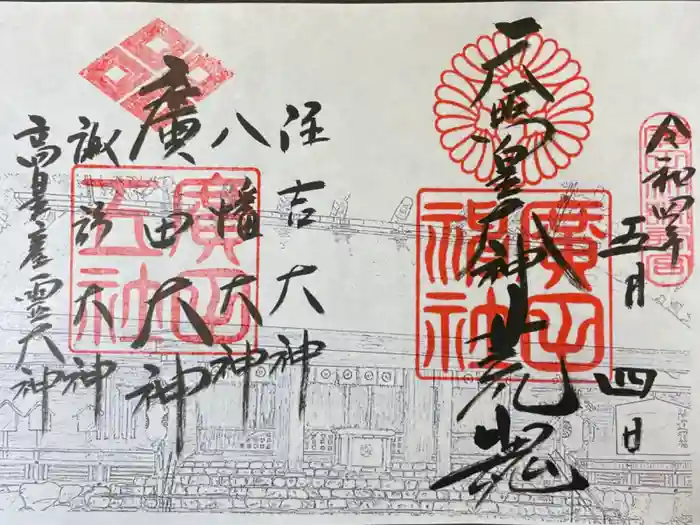 令和四年
五月四日
天照皇大神荒魂
廣田
神社
住吉大神
八幡大神
廣田大神
諏訪大神
高皇産霊大神
廣田
五社